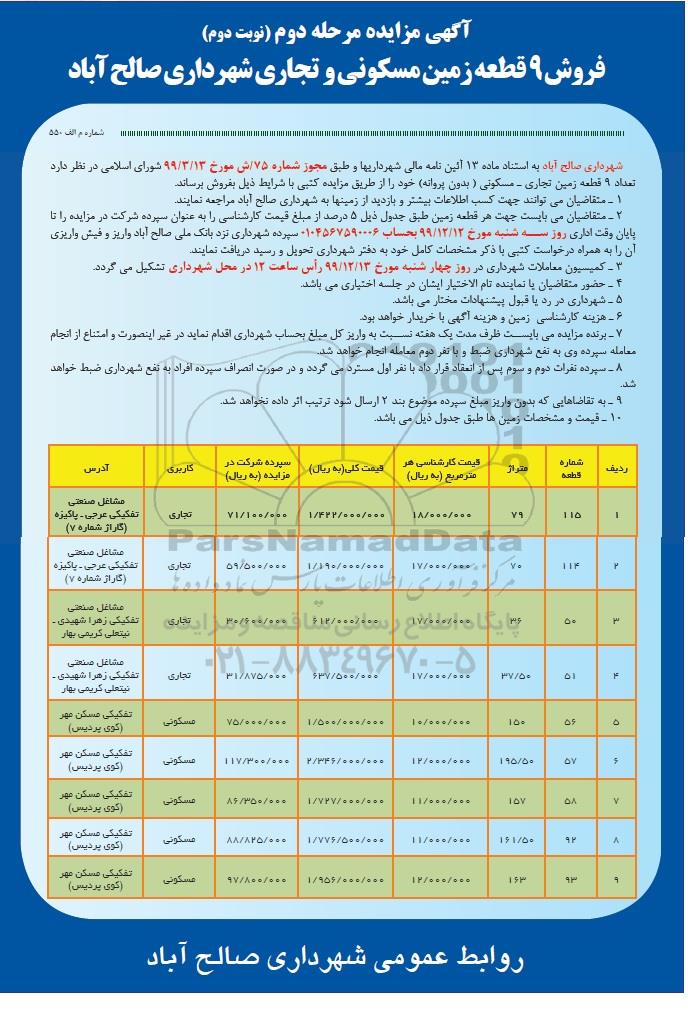 آگهی مزایده مرحله دوم (نوبت دوم)
فروش ۹ قطعه زمین مسکونی و تجاری شهرداری صالح آباد
شماره م الف ۵۵۰
شهرداری صالح آباد به استناد ماده ۱۳ آئین نامه مالی شهرداریها و طبق مجوز شماره ۷۵/ش مورخ ۹۹/۳/۱۳ شورای اسلامی در نظر دارد
تعداد ۹ قطعه زمین تجاری ـ مسکونی ( بدون پروانه) خود را از طریق مزایده کتبی با شرایط ذیل بفروش برساند.
۱ ـ متقاضیان می توانند جهت کسب اطلاعات بیشتر و بازدید از زمینها به شهرداری صالح آباد مراجعه نمایند.
۲ ـ متقاضیان می بایست جهت هر قطعه زمین طبق جدول ذیل ۵ درصد از مبلغ قیمت کارشناسی را به عنوان سپرده شرکت در مزایده را تا
پایان وقت اداری روز سـه شنبه مورخ ۹۹/۱۲/۱۲ بحساب ۰۱۰۴۵۶۷۵۹۰۰۰۶ سپرده شهرداری نزد بانک ملی صالح آباد واریز و فیش واریزی
آن را به همراه درخواست کتبی با ذکر مشخصات کامل خود به دفتر شهرداری تحویل و رسید دریافت نمایند.
۳ ـ کمیسیون معاملات شهرداری در روز چهار شنبه مورخ ۹۹/۱۲/۱۳ رأس ساعت ۱۲ در محل شهرداری تشکیل می گردد.
۴ ـ حضور متقاضیان یا نماینده تام الاختیار ایشان در جلسه اختیاری می باشد.
۵ ـ شهرداری در رد یا قبول پیشنهادات مختار می باشد.
۶ ـ هزینه کارشناسی زمین و هزینه آگهی با خریدار خواهد بود.
۷ ـ برنده مزایده می بایست ظرف مدت یک هفته نسبت به واریز کل مبلغ بحساب شهرداری اقدام نماید در غیر اینصورت و امتناع از انجام
معامله سپرده وی به نفع شهرداری ضبط و با نفر دوم معامله انجام خواهد شد.
۸ ـ سپرده نفرات دوم و سوم پس از انعقاد قرار داد با نفر اول مسترد می گردد و در صورت انصراف سپرده افراد به نفع شهرداری ضبط خواهد
شد.
۹ ـ به تقاضاهایی که بدون واریز مبلغ سپرده موضوع بند ۲ ارسال شود ترتیب اثر داده نخواهد شد.
۱۰ ـ قیمت و مشخصات زمین ها طبق جدول ذیل می باشد.
ردیف شماره قطعه متراژ قیمت کارشناسی هر مترمربع (به ریال) قیمت کلی(به ریال) سپرده شرکت در مزایده (به ریال) کاربری آدرس
۱ ۱۱۵ ۷۹ ۱۸/۰۰۰/۰۰۰ ۱/۴۲۲/۰۰۰/۰۰۰ ۷۱/۱۰۰/۰۰۰ تجاری مشاغل صنعتی تفکیکی عرجی ـ پاکیزه (گاراژ شماره ۷)
۲ ۱۱۴ ۷۰ ۱۷/۰۰۰/۰۰۰ ۱/۱۹۰/۰۰۰/۰۰۰ ۵۹/۵۰۰/۰۰۰ تجاری مشاغل صنعتی تفکیکی عرجی ـ پاکیزه (گاراژ شماره ۷)
۳ ۵۰ ۳۶ ۱۷/۰۰۰/۰۰۰ ۶۱۲/۰۰۰/۰۰۰ ۳۰/۶۰۰/۰۰۰ تجاری مشاغل صنعتی تفکیکی زهرا شهیدی ـ نیتعلی کریمی بهار
۴ ۵۱ ۳۷/۵۰ ۱۷/۰۰۰/۰۰۰ ۶۳۷/۵۰۰/۰۰۰ ۳۱/۸۷۵/۰۰۰ تجاری مشاغل صنعتی تفکیکی زهرا شهیدی ـ نیتعلی کریمی بهار
۵ ۵۶ ۱۵۰ ۱۰/۰۰۰/۰۰۰ ۱/۵۰۰/۰۰۰/۰۰۰ ۷۵/۰۰۰/۰۰۰ مسکونی تفکیکی مسکن مهر (کوی پردیس)
۶ ۵۷ ۱۹۵/۵۰ ۱۲/۰۰۰/۰۰۰ ۲/۳۴۶/۰۰۰/۰۰۰ ۱۱۷/۳۰۰/۰۰۰ مسکونی تفکیکی مسکن مهر (کوی پردیس)
۷ ۵۸ ۱۵۷ ۱۱/۰۰۰/۰۰۰ ۱/۷۲۷/۰۰۰/۰۰۰ ۸۶/۳۵۰/۰۰۰ مسکونی تفکیکی مسکن مهر (کوی پردیس)
۸ ۹۲ ۱۶۱/۵۰ ۱۱/۰۰۰/۰۰۰ ۱/۷۷۶/۵۰۰/۰۰۰ ۸۸/۸۲۵/۰۰۰ مسکونی تفکیکی مسکن مهر (کوی پردیس)
۹ ۹۳ ۱۶۳ ۱۲/۰۰۰/۰۰۰ ۱/۹۵۶/۰۰۰/۰۰۰ ۹۷/۸۰۰/۰۰۰ مسکونی تفکیکی مسکن مهر (کوی پردیس)
ParsNamadData
مرکز فرآوری اطلاعات پارس نماد داده ها
پایگاه اطلاع رسانی مناقصه و مزایده
۰۲۱-۸۸۳۴۹۶۷۰-۵
روابط عمومی شهرداری صالح آباد